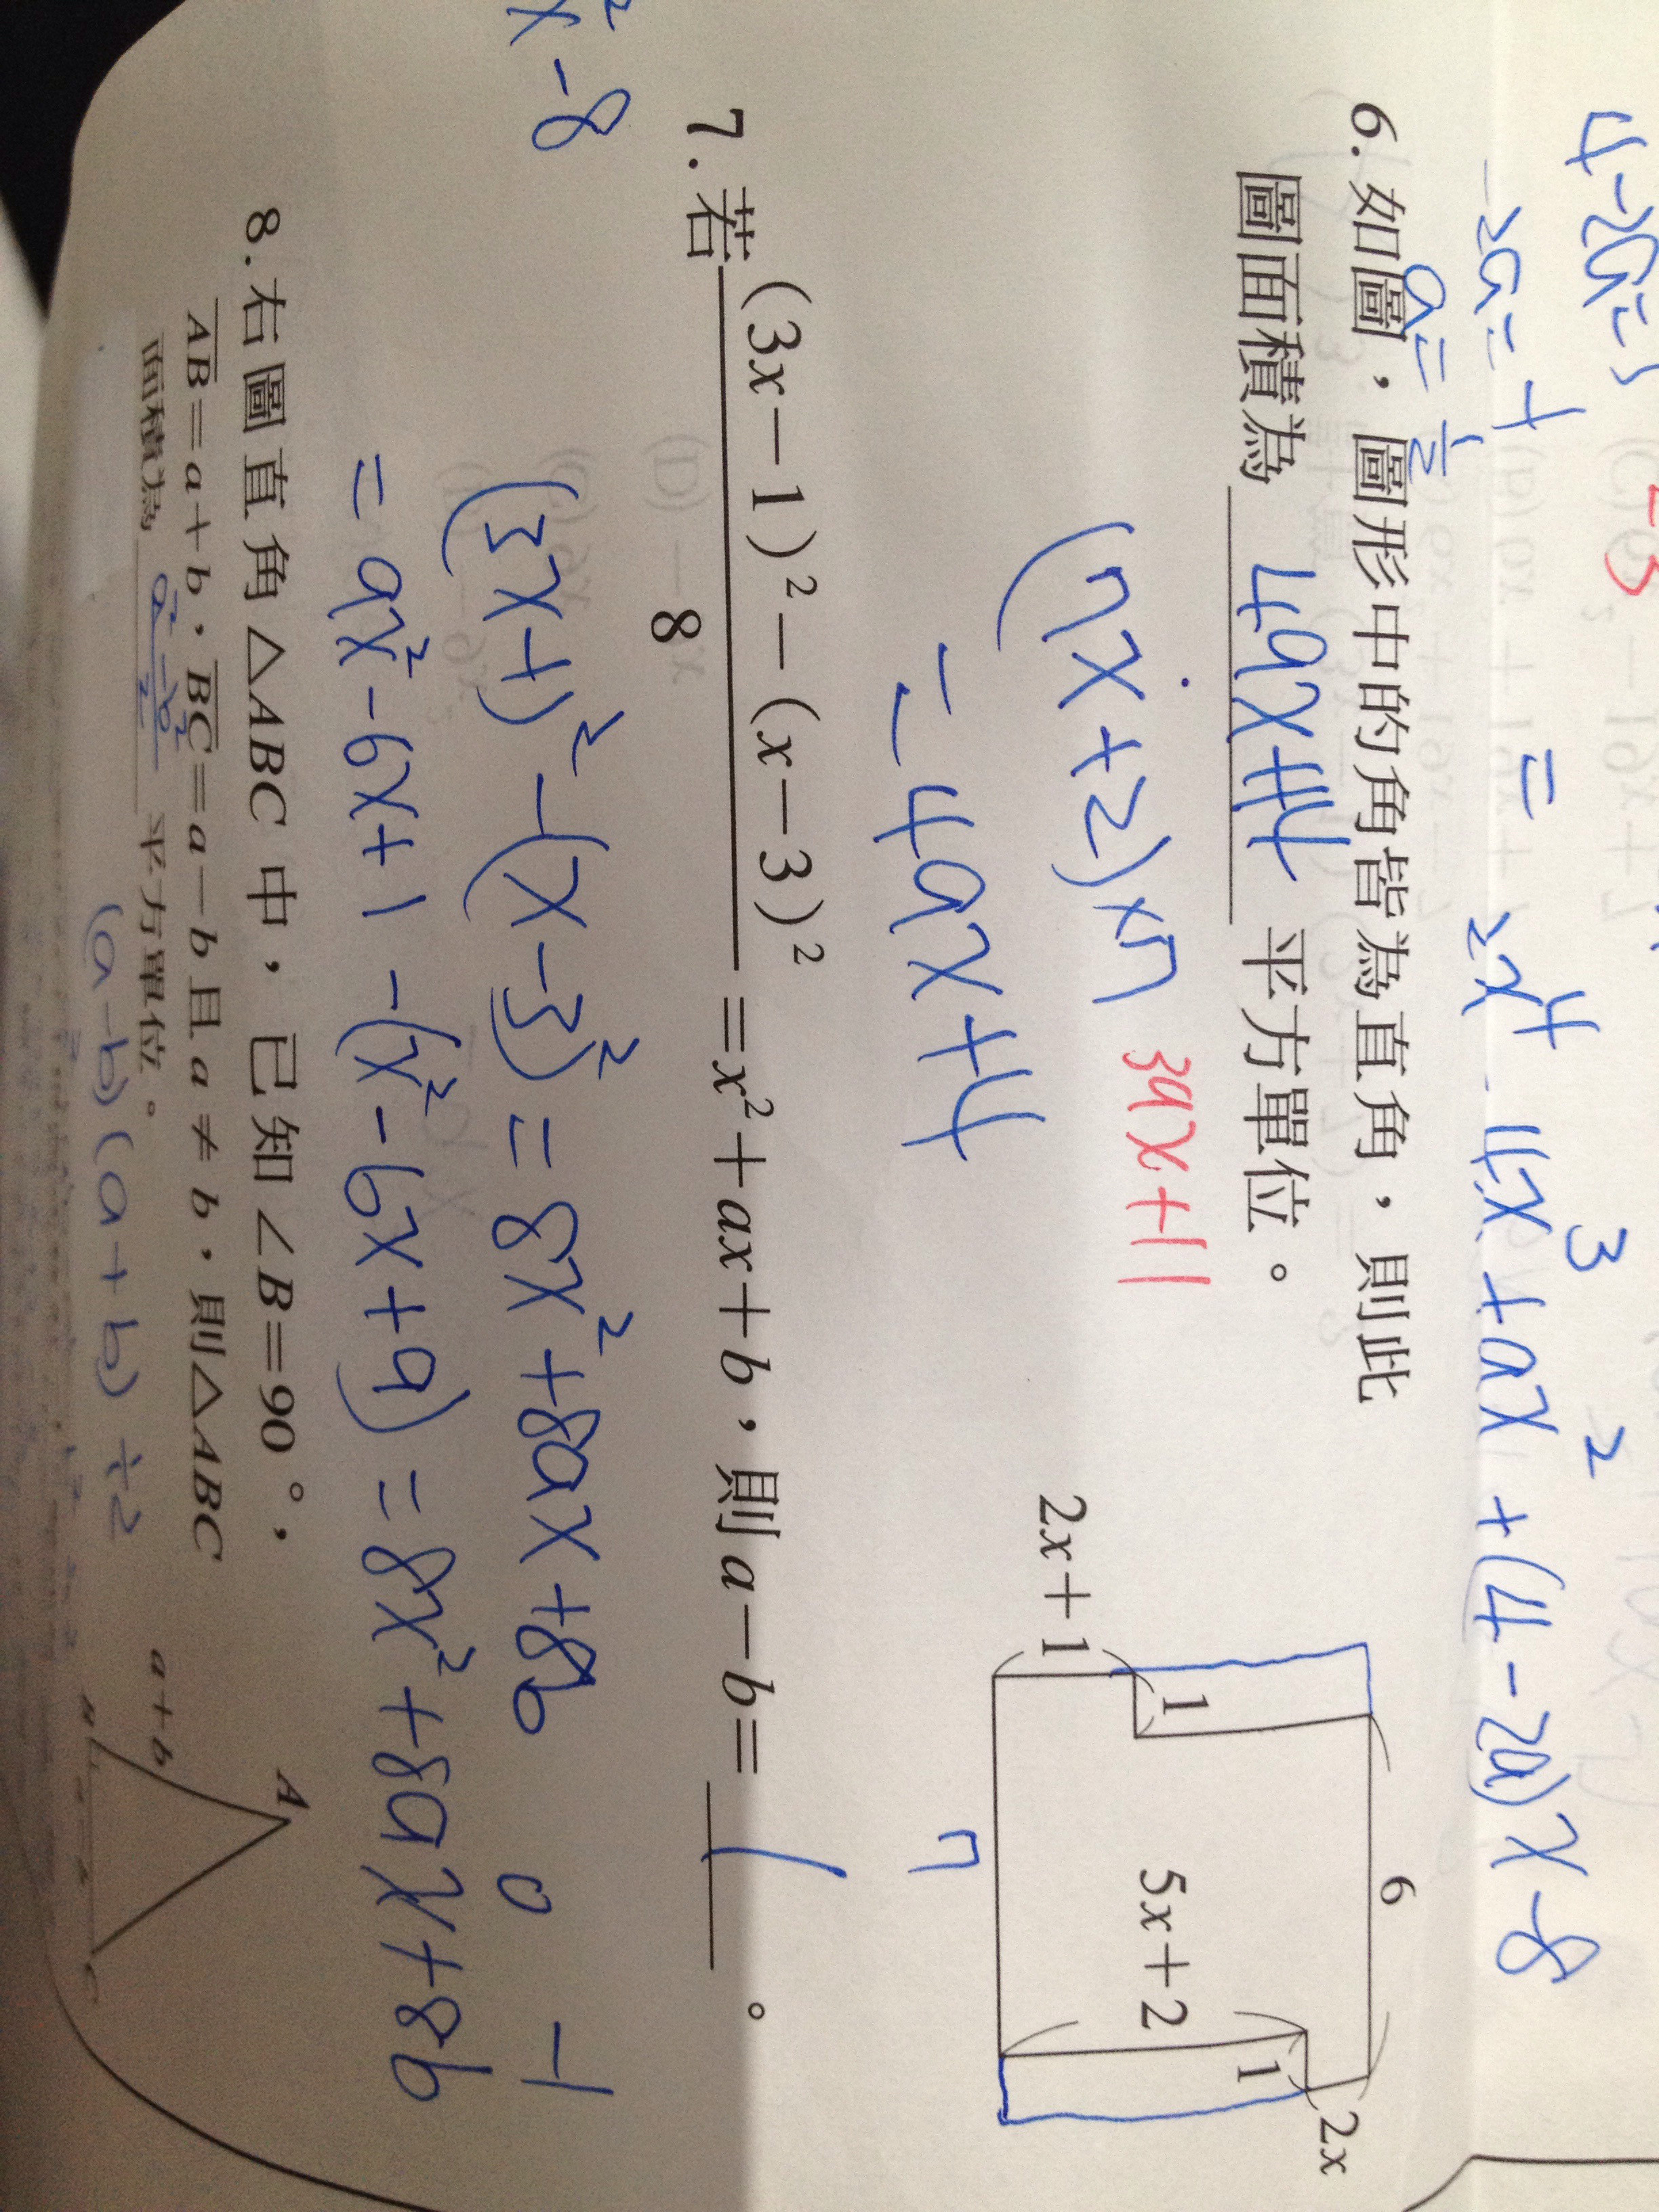 4-2a=3
-2a=-1
a=1/2
-3
= x⁴-4x³+ax²+(4-2a)x-8
6.如圖,圖形中的角皆為直角,則此
圖面積為 49x+14 平方單位。
(7x+2)×7
39x+11
=49x+14
2x+1
1
6
5x+2
1
2x
7
7.若 (3x-1)²-(x-3)² / 8 =x²+ax+b,則a-b= 1 。
x²-8
(3x-1)²-(x-3)²=8x²+8ax+8b
0 -1
=9x²-6x+1-(x²-6x+9)=8x²+8ax+8b
8.右圖直角△ABC中,已知∠B=90°,
AB=a+b,BC=a-b且a≠b,則△ABC
面積為 a²-b²/2 平方單位。
(a-b)(a+b)÷2
A
a+b
B
C